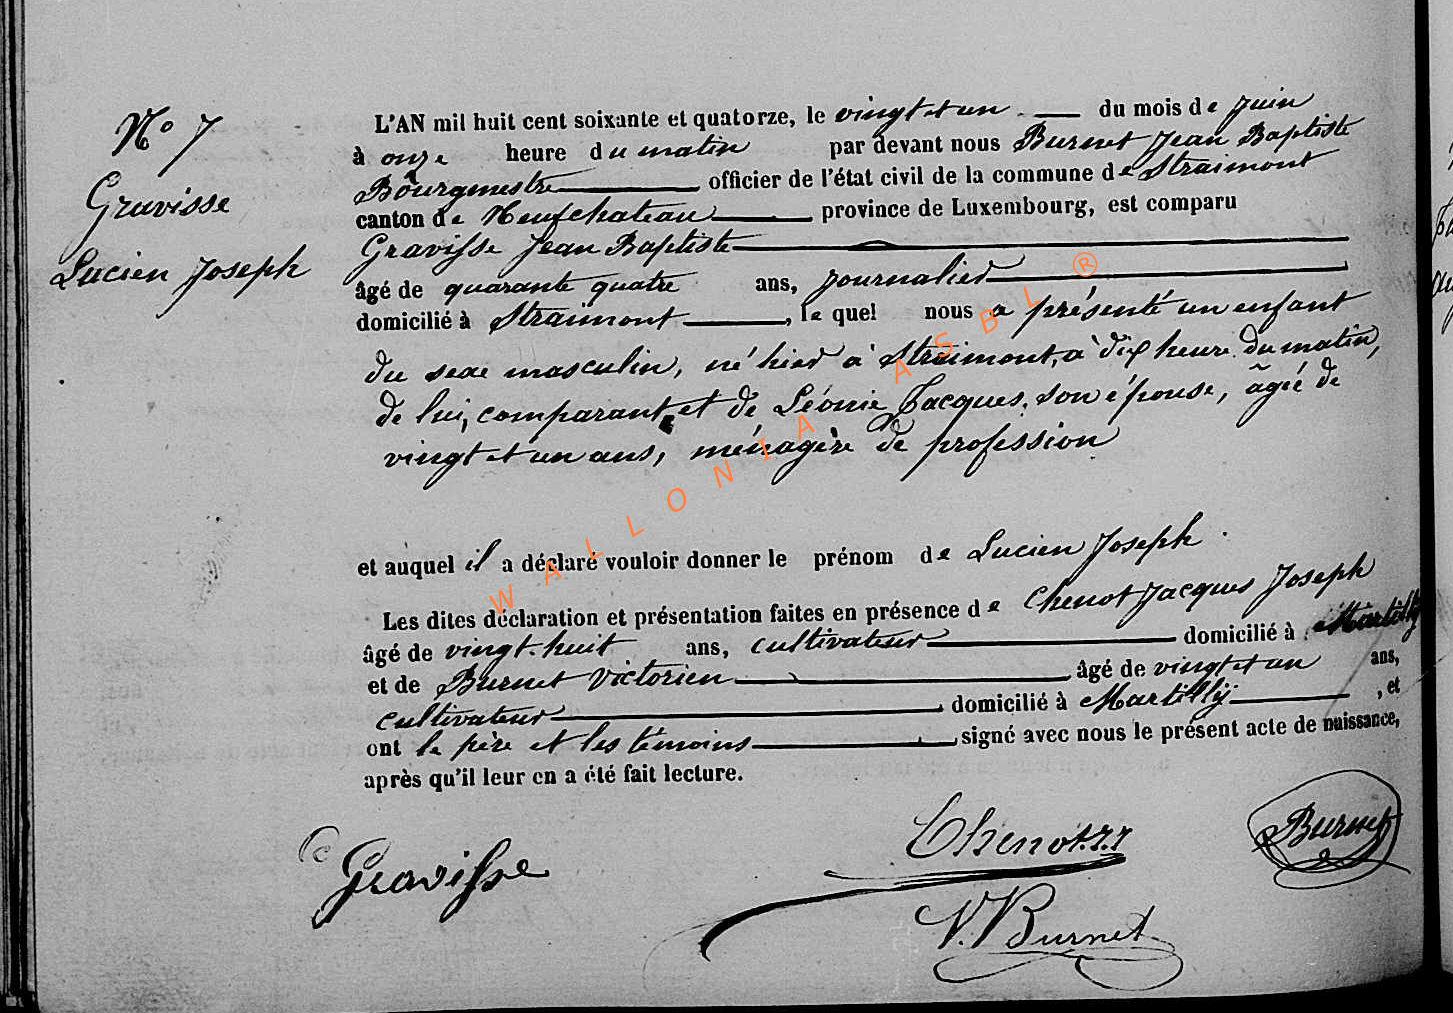 No 7
Gravisse
Lucien Joseph
L'AN mil huit cent soixante et quatorze, le vingt et un du mois de Juin
à onze heure du matin par devant nous Burnet Jean Baptiste
Bourgmestre officier de l'état civil de la commune de Straimont
canton de Neufchateau province de Luxembourg, est comparu
Gravisse Jean Baptiste
âgé de quarante quatre ans, journalier
domicilié à Straimont, le quel nous a présenté un enfant
du sexe masculin, né hier à Straimont, à dix heure du matin,
de lui, comparant, et de Léonie Jacques, son épouse, âgée de
vingt et un ans, ménagère de profession
et auquel il a déclaré vouloir donner le prénom de Lucien Joseph.
Les dites déclaration et présentation faites en présence de Chenot Jacques Joseph
âgé de vingt-huit ans, cultivateur domicilié à Martilly
et de Burnet Victorien âgé de vingt et un ans,
cultivateur, domicilié à Martilly, et
ont le père et les témoins, signé avec nous le présent acte de naissance,
après qu'il leur en a été fait lecture.
Gravisse
Chenot.J.J
Burnet
V. Burnet
WALLONIA ASBL ®